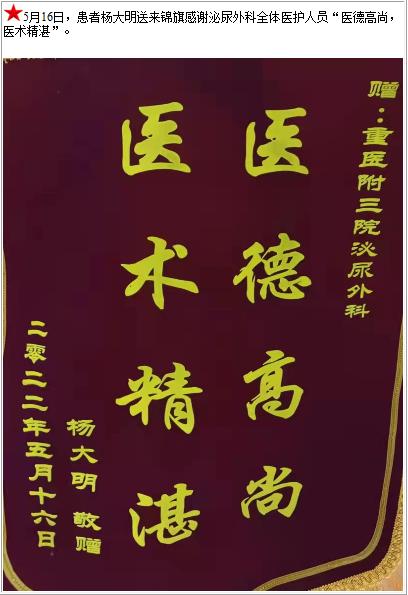 5月16日，患者杨大明送来锦旗感谢泌尿外科全体医护人员“医德高尚，
医术精湛”。
赠：重医附三院泌尿外科
医德高尚
医术精湛
杨大明 敬赠
二零二二年五月十六日